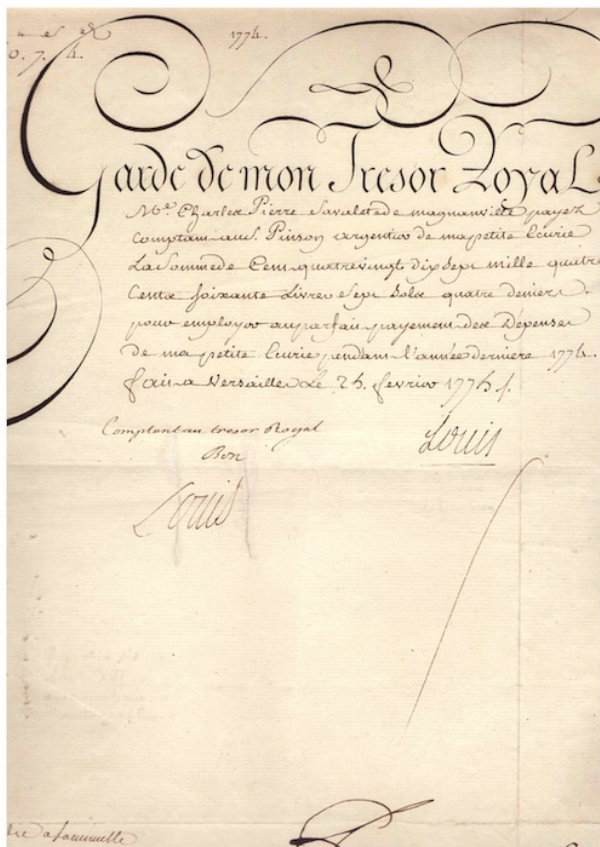 1774.
0. 7. 4.
Garde de mon Tresor Royal
Me. Charles Pierre Savalete de magnanville payez
Comptant au S. Pinson argentier de ma petite Ecurie
La Somme de Cent quatrevingt dix Sept mille quatre
Cents soixante Livres Sept Sols quatre deniers
pour employer au parfait payement des Dépenses
de ma petite Ecurie pendant l'année derniere 1774.
fait a Versailles Le 25. fevrier 1775 ./.
Louis
Comptant au tresor Royal
Bon
Louis